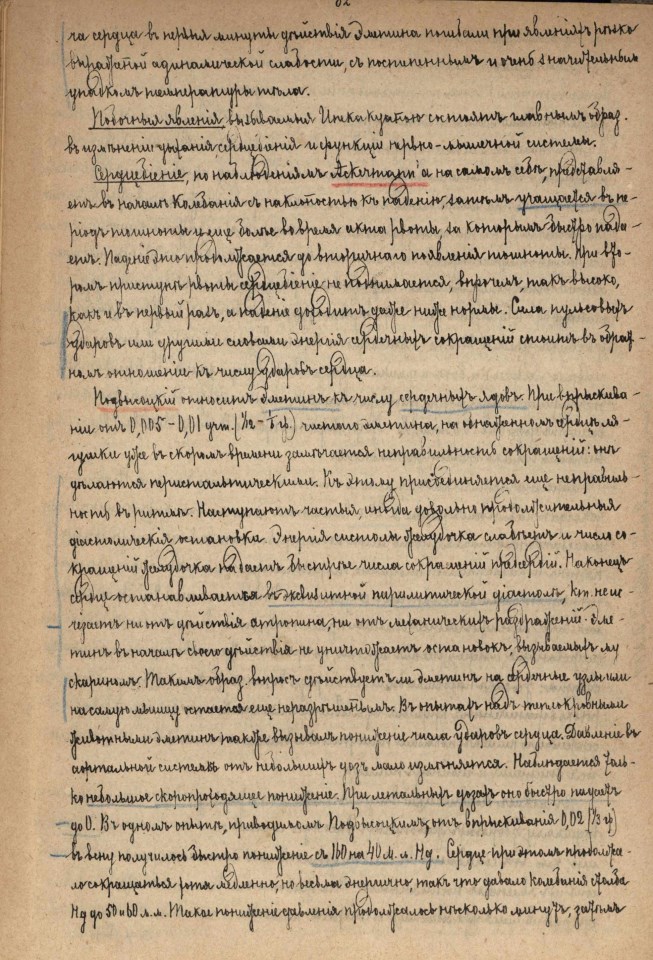 62
ча сердца въ первыя минуты дѣйствія эметина погибали при явленіяхъ рѣзко
выраженной адинамической слабости, съ постепеннымъ и очень значительнымъ
упадкомъ температуры тѣла.
Побочныя явленія, вызываемыя Ипекакуаною состоятъ главнымъ образ.
въ измѣненіи дыханія, сердцебіенія и функціи нервно-мышечной системы.
Сердцебіеніе, по наблюденіямъ Ackermann'а на самомъ себѣ, представля-
етъ въ началѣ колебанія съ наклонностью къ паденію, затѣмъ учащается въ пе-
ріодъ тошноты и еще болѣе во время акта рвоты, за которымъ быстро пада-
етъ. Паденіе это продолжается до вторичнаго появленія тошноты. При вто-
ромъ приступѣ рвоты сердцебіеніе не поднимается, впрочемъ, такъ высоко,
какъ и въ первый разъ, а паденіе доходитъ даже ниже нормы. Сила пульсовыхъ
ударовъ или другими словами энергія сердечныхъ сокращеній стоитъ въ обрат-
номъ отношеніи къ числу ударовъ сердца.
Подвысоцкій относитъ эметинъ къ числу сердечныхъ ядовъ. При впрыскива-
ніи отъ 0,005 – 0,01 grm. (1/12 – 1/6 gr.) чистаго эметина, на обнаженномъ сердцѣ ля-
гушки уже въ скоромъ времени замѣчается неправильность сокращеній: онѣ
дѣлаются перистальтическими. Къ этому присоединяется еще неправиль-
ность въ ритмѣ. Наступаютъ частыя, иногда довольно продолжительныя
діастолическія остановки. Энергія систолы желудочка слабѣетъ и число со-
кращеній желудочка падаетъ быстрѣе числа сокращеній предсердій. Наконецъ
сердце останавливается въ экзквизитной паралитической діастолѣ, кот. не ис-
чезаетъ ни отъ дѣйствія атропина, ни отъ механическихъ раздраженій. Эме-
тинъ въ началѣ своего дѣйствія не уничтожаетъ остановокъ, вызываемыхъ му
скариномъ. Такимъ образ. вопросъ дѣйствуетъ ли эметинъ на сердечные узлы или
на самую мышцу остается еще неразрѣшеннымъ. Въ опытахъ надъ теплокровными
животными эметинъ также вызывалъ пониженіе числа ударовъ сердца. Давленіе въ
аортальной системѣ отъ небольшихъ дозъ мало измѣняется. Наблюдается толь-
ко небольшое скоропроходящее пониженіе. При летальныхъ дозахъ оно быстро падаетъ
до 0. Въ одномъ опытѣ, приводимомъ Подвысоцкимъ, отъ впрыскиванія 0,02 (1/3 gr)
въ вену получилось быстро пониженіе съ 160 на 40 м.м. Hg. Сердце при этомъ продолжа-
ло сокращаться хотя медленно, но весьма энергично, такъ что давало колебанія столба
Hg до 50 и 60 м.м. Такое пониженіе давленія продолжалось нѣсколько минутъ, затѣмъ